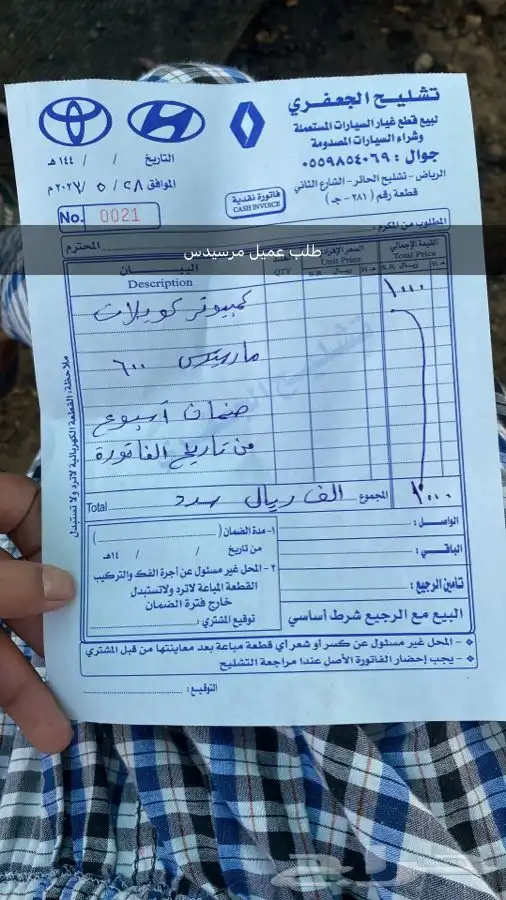 تشليح الجعفري
لبيع قطع غيار السيارات المستعملة
وشراء السيارات المصدومة
جوال : ٠٥٥٩٨٥٤٠٦٩
الرياض - تشليح الحائر - الشارع الثاني
قطعة رقم (٢٨١ - جـ)
التاريخ / / ١٤٤ هـ
الموافق ٢٨ / ٥ / ٢٠٢ م
فاتورة نقدية
CASH INVOICE
No. 0021
المطلوب من المكرم :
المحترم
طلب عميل مرسيدس
البيــــان
Description
QTY
السعر الإفرادي
Unit Price
القيمة الإجمالي
Total Price
هـ ريال S.R.
هـ ريال S.R.
كمبيوتر كويلات ١٠٠٠
ماريتكس ٦٠٠
ضمان اسبوع
من تاريخ الفاتورة
Total الف ريال سدد المجموع ١٠٠٠
ملاحظة: القطعة الكهربائية لاترد ولا تستبدل
١- مدة الضمان ( )
من تاريخ / / ١٤هـ
٢ - المحل غير مسئول عن أجرة الفك والتركيب
القطعة المباعة لاترد ولاتستبدل
خارج فترة الضمان
توقيع المشتري :
الواصل :
الباقي :
تأمين الرجيع :
البيع مع الرجيع شرط أساسي
- المحل غير مسئول عن كسر أو شعر أي قطعة مباعة بعد معاينتها من قبل المشتري
- يجب إحضار الفاتورة الأصل عندا مراجعة التشليح
التوقيع :
حراج